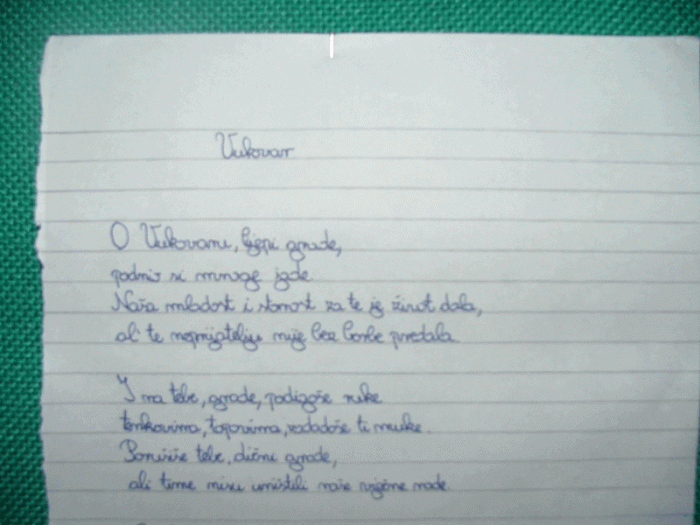 Vukovar
O Vukovaru, lijepi grade,
podnio si mnoge jade.
Naša mladost i starost za te je život dala,
al' te neprijatelju nije bez borbe predala.
I na tebe, grade, podigoše ruke
tenkovima, topovima, zadadoše ti muke.
Porušiše tebe, dični grade,
ali time nisu uništili naše vječne nade.